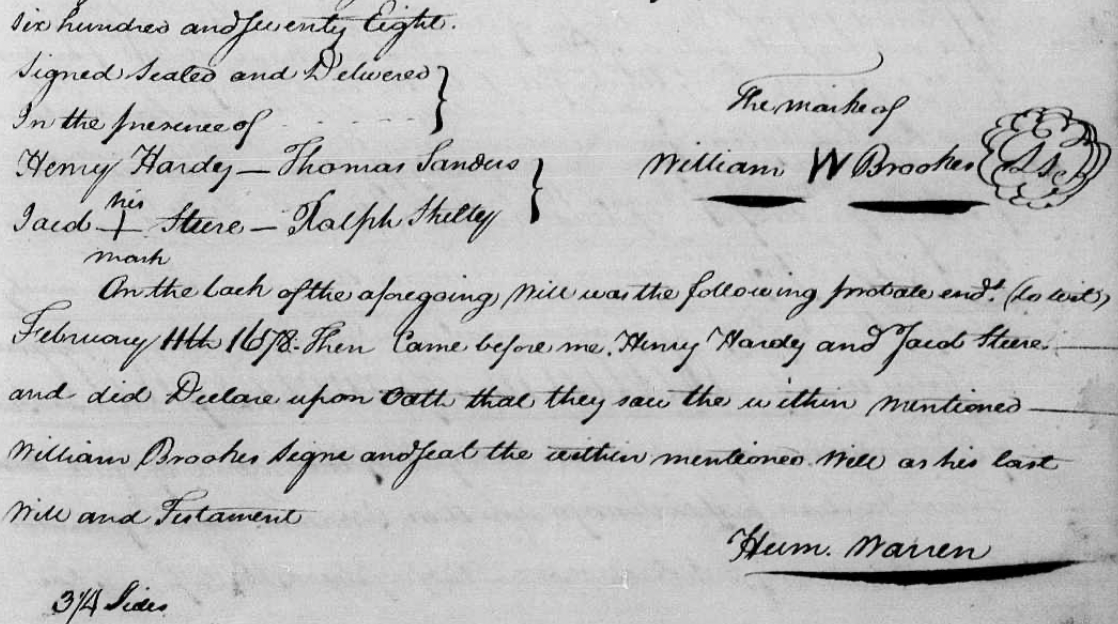 six hundred and Seventy Eight.
Signed Sealed and Delivered
In the presence of
The marke of
Henry Hardy — Thomas Sanders
William W Brookes
his
Jacob + Steere — Ralph Shelley
mark
On the back of the aforegoing Will was the following probate end.t (to wit)
February 11th 1678. Then Came before me. Henry Hardy and Jacob Steere
and did Declare upon Oath that they saw the within mentioned
William Brookes Signe and Seal the within mentioned Will as his last
Will and Testament
Hum. Warren
3/4 Sides